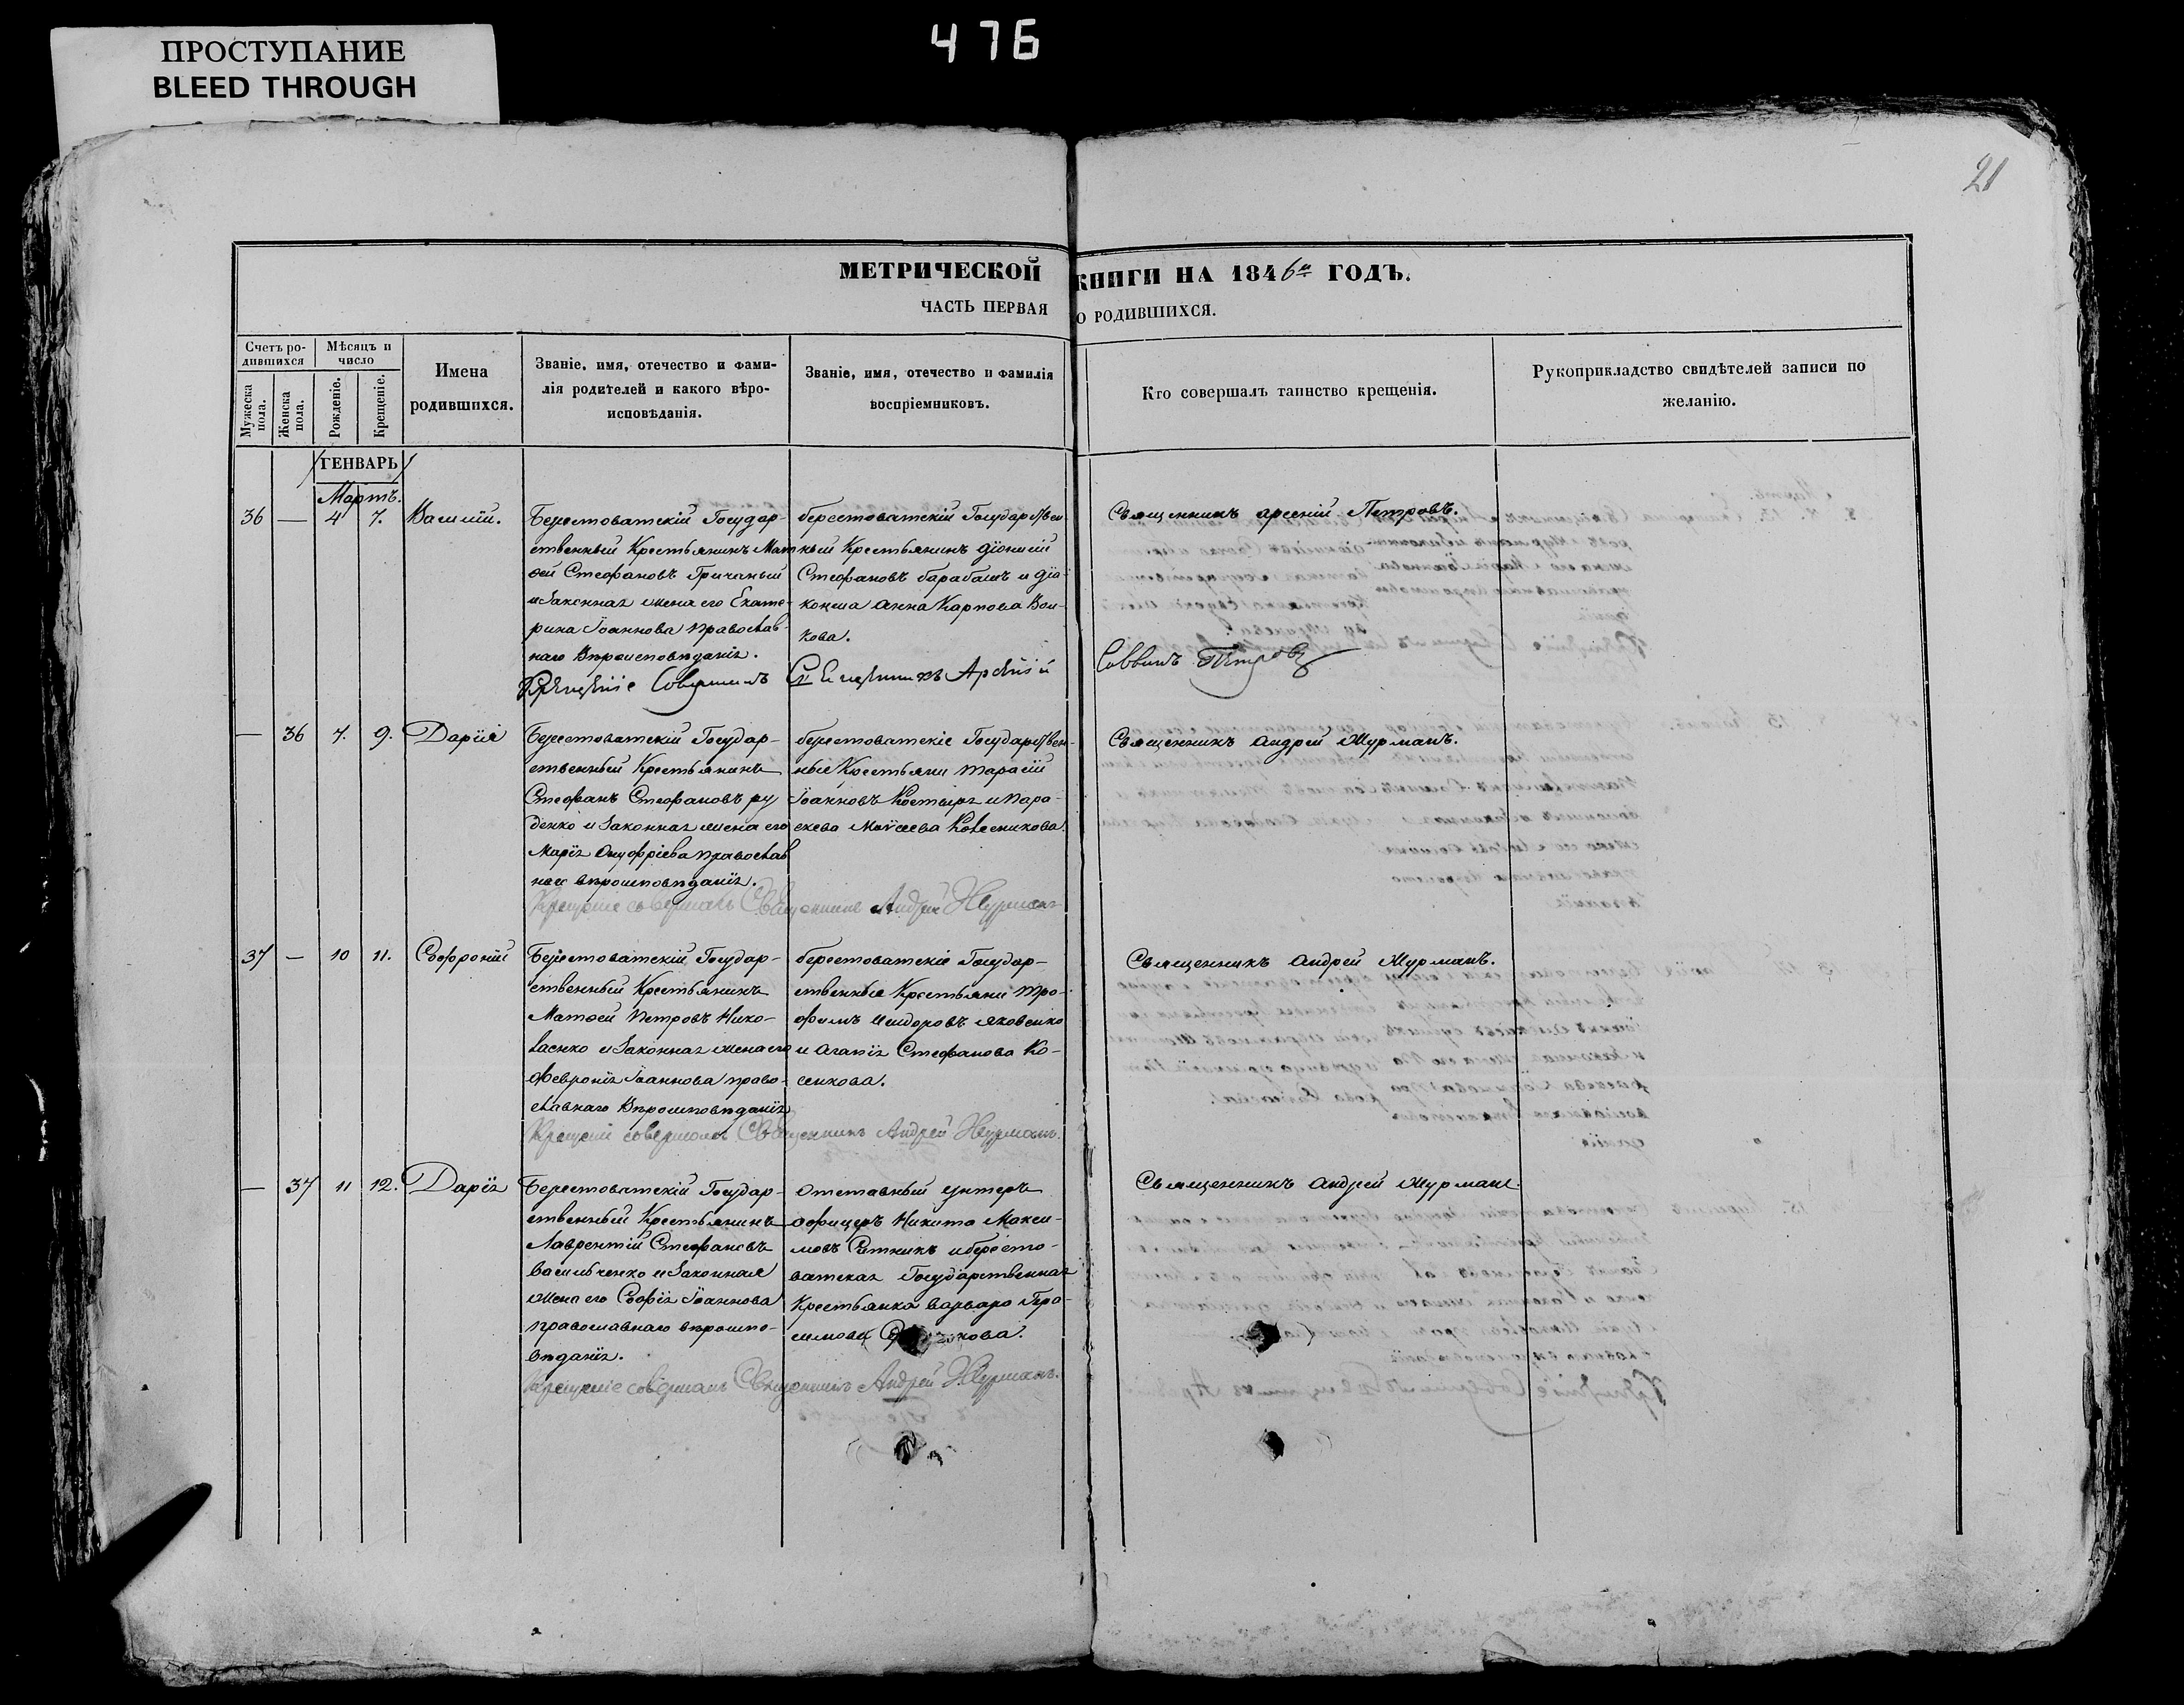 ПРОСТУПАНИЕ
BLEED THROUGH
476
21
МЕТРИЧЕСКОЙ КНИГИ НА 1846й ГОДЪ.
ЧАСТЬ ПЕРВАЯ О РОДИВШИХСЯ.
Счетъ ро-
дившихся
Мѣсяцъ и
число
Мужеска
пола.
Женска
пола.
Рожденіе.
Крещеніе.
Имена
родившихся.
Званіе, имя, отечество и фами-
лія родителей и какого вѣро-
исповѣданія.
Званіе, имя, отечество и фамилія
воспріемниковъ.
Кто совершалъ таинство крещенія.
Рукоприкладство свидѣтелей записи по
желанію.
ГЕНВАРЬ
Мартъ.
36 — 4 7. Василій.
Берестоватскій Государ-
ственный Крестьянинъ Мат
ѳей Стефановъ Гричаный
и Законная жена его Екате-
рина Іоаннова православ-
наго Вѣроисповѣданія.
берестоватскій Государствен
ный Крестьянинъ Діонисій
Стефановъ барабашъ и Діа-
конша Анна Карпова Вол-
кова.
Священникъ Арсеній Петровъ.
Крещеніе Совершилъ Священникъ Арсеній
Саввинъ Петровъ
— 36 7. 9. Дарія
Берестоватскій Государ-
ственный Крестьянинъ
Стефанъ Стефановъ ру
денко и Законная жена его
Марія Онуфріева православ
ное вѣроисповѣданія.
берестоватскіе Государствен-
ные Крестьяни Тарасій
Іоанновъ Костыря и пара-
скева Моѵсеева Колесникова.
Священникъ Андрей Журманъ.
Крещеніе совершалъ Священникъ Андрей Журманъ
37 — 10 11. Софроній
Берестоватскій Государ-
ственный Крестьянинъ
Матѳей Петровъ Нико-
лаенко и Законная жена его
Февронія Іоаннова право-
славнаго Вѣроисповѣданія
берестоватскіе Государ-
ственные Крестьяни Тро-
фимъ Исидоровъ Яковенко
и Агапія Стефанова Ко-
сенкова.
Священникъ Андрей Журманъ.
Крещеніе совершалъ Священникъ Андрей Журманъ.
— 37 11 12. Дарія
Берестоватскій Государ-
ственный Крестьянинъ
Лаврентій Стефановъ
Васильченко и Законная
жена его Софія Іоаннова
православнаго вѣроиспо-
вѣданія.
Отставный унтеръ
офицеръ Никита Макси-
мовъ Ситникъ и бересто-
ватская Государственная
Крестьянка Варвара Гера-
симова
Священникъ Андрей Журман.
Крещеніе совершалъ Священникъ Андрей Журманъ.